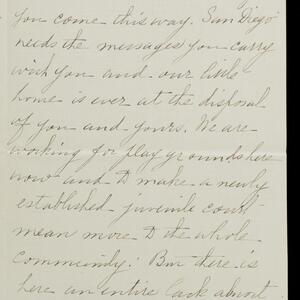 you come this way. San Diego
needs the messages you carry
with you and our little
home is ever at the disposal
of you and yours. We are
working for play grounds here
now and to make a newly
established juvenile court
mean more to the whole
community. But there is
here an entire lack almost